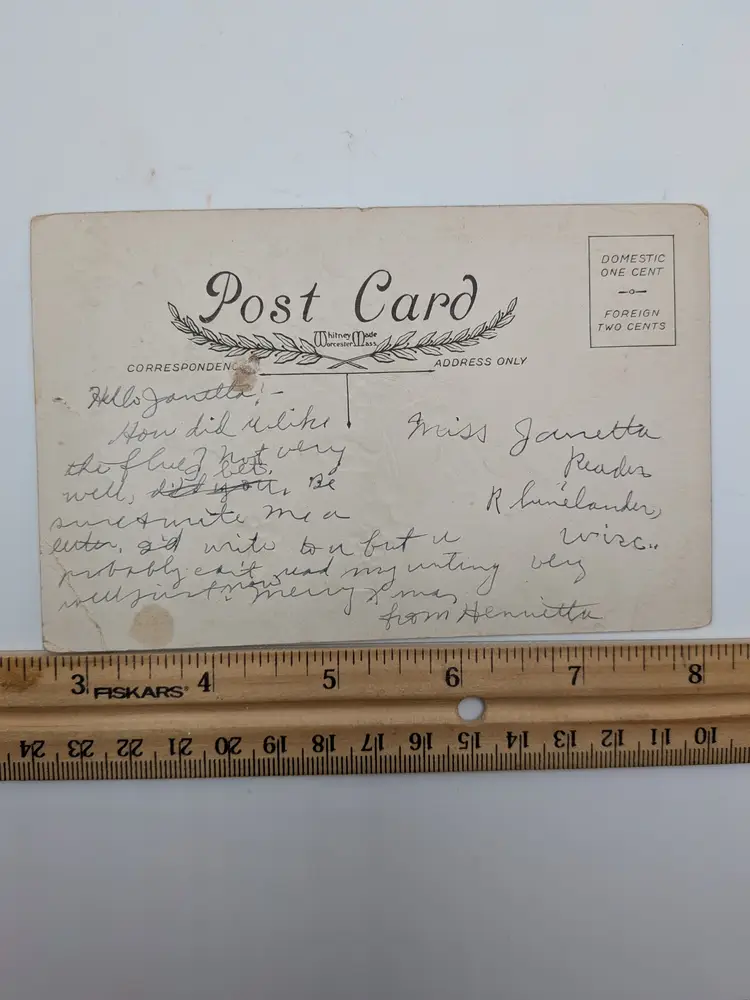 Post Card
Whitney Made
Worcester Mass.
CORRESPONDENCE
ADDRESS ONLY
DOMESTIC
ONE CENT
FOREIGN
TWO CENTS
Hello Janetta! -
How did u like
the flue? Not very
well, did you, bet. Be
sure + write me a
letter. I'd write to u but u
probably can't read my writing very
well just now. Merry Xmas
from Henrietta
Miss Janetta
Reader
Rhinelander,
Wisc..
3 FISKARS 4 5 6 7 8
24 23 22 21 20 19 18 17 16 15 14 13 12 11 10